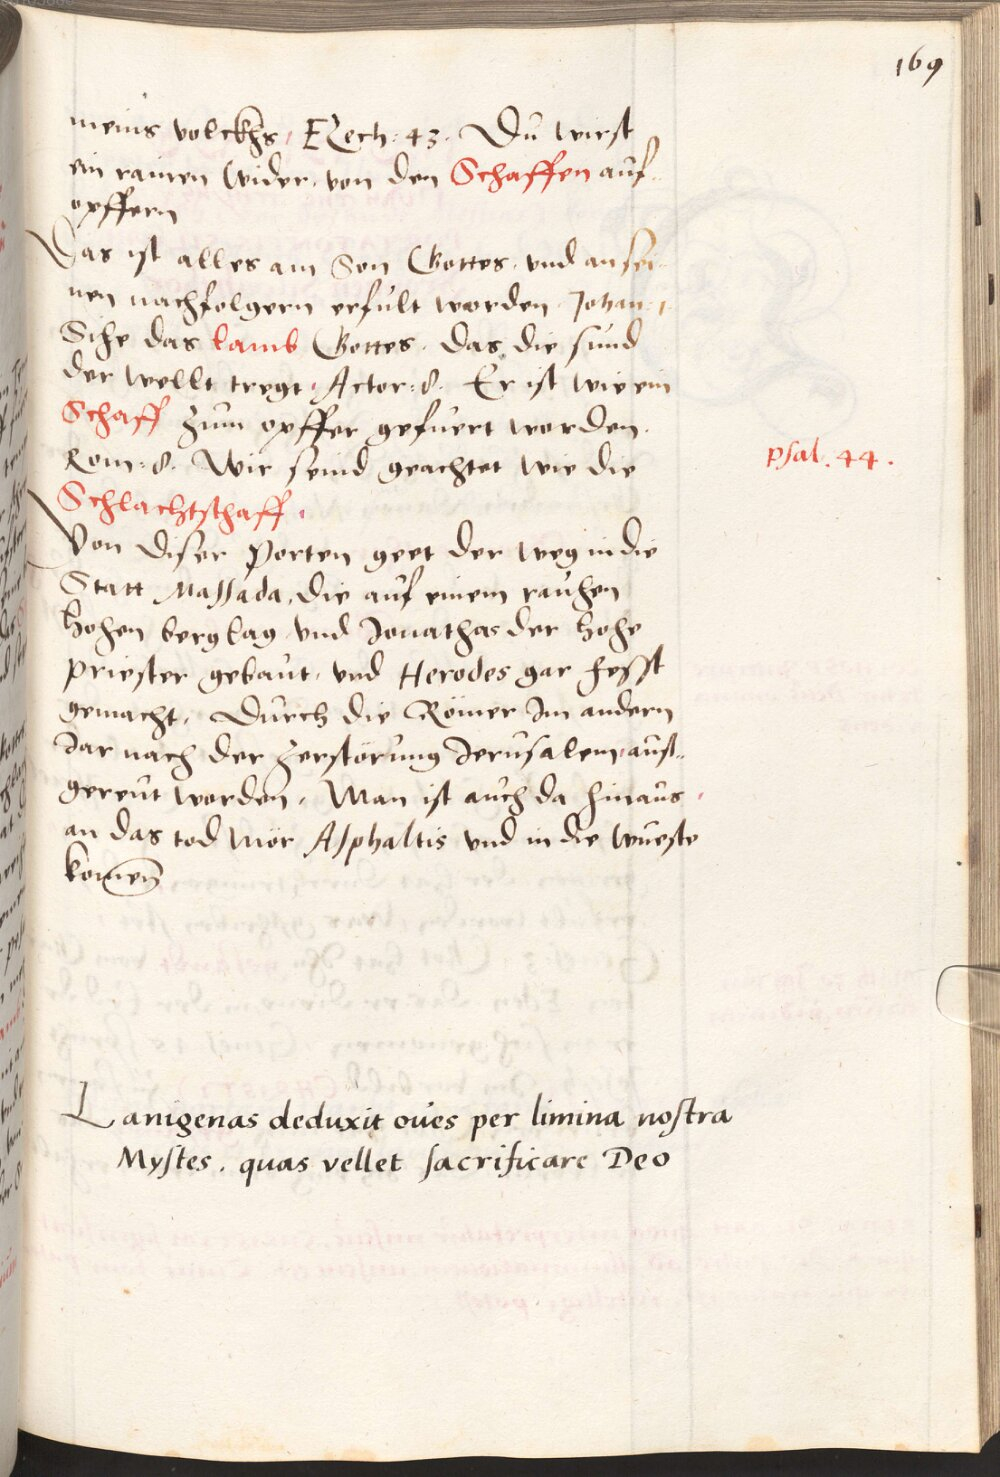 169
meins volckhs, EZech: 43. Du wirst
ein rainen Wider, von den Schaffen auf-
opffern
Das ist alles am Son Gottes, und an sei-
nen nachfolgern erfült worden. Johan: 1
Sihe das lamb Gottes, das die sünd
der wellt tregt, Actor: 8. Er ist wie ein
Schaff zum opffer gefuert worden.
Rom: 8. Wir seind geachtet wie die
psal. 44.
Schlachtschaff.
Von diser Porten geet der weg in die
Statt Massada, die auf einem rauhen
hohen berg lag und Jonathas der hohe
priester gebaut, und Herodes gar fesst
gemacht, Durch die Römer Im andern
Jar nach der zerstörung Jerusalem aus-
gereut worden, Man ist auch da hinaus
an das tod Mör Asphaltis und in die wueste
komen
Lanigenas deduxit oues per limina nostra
Mystes, quas vellet sacrificare Deo